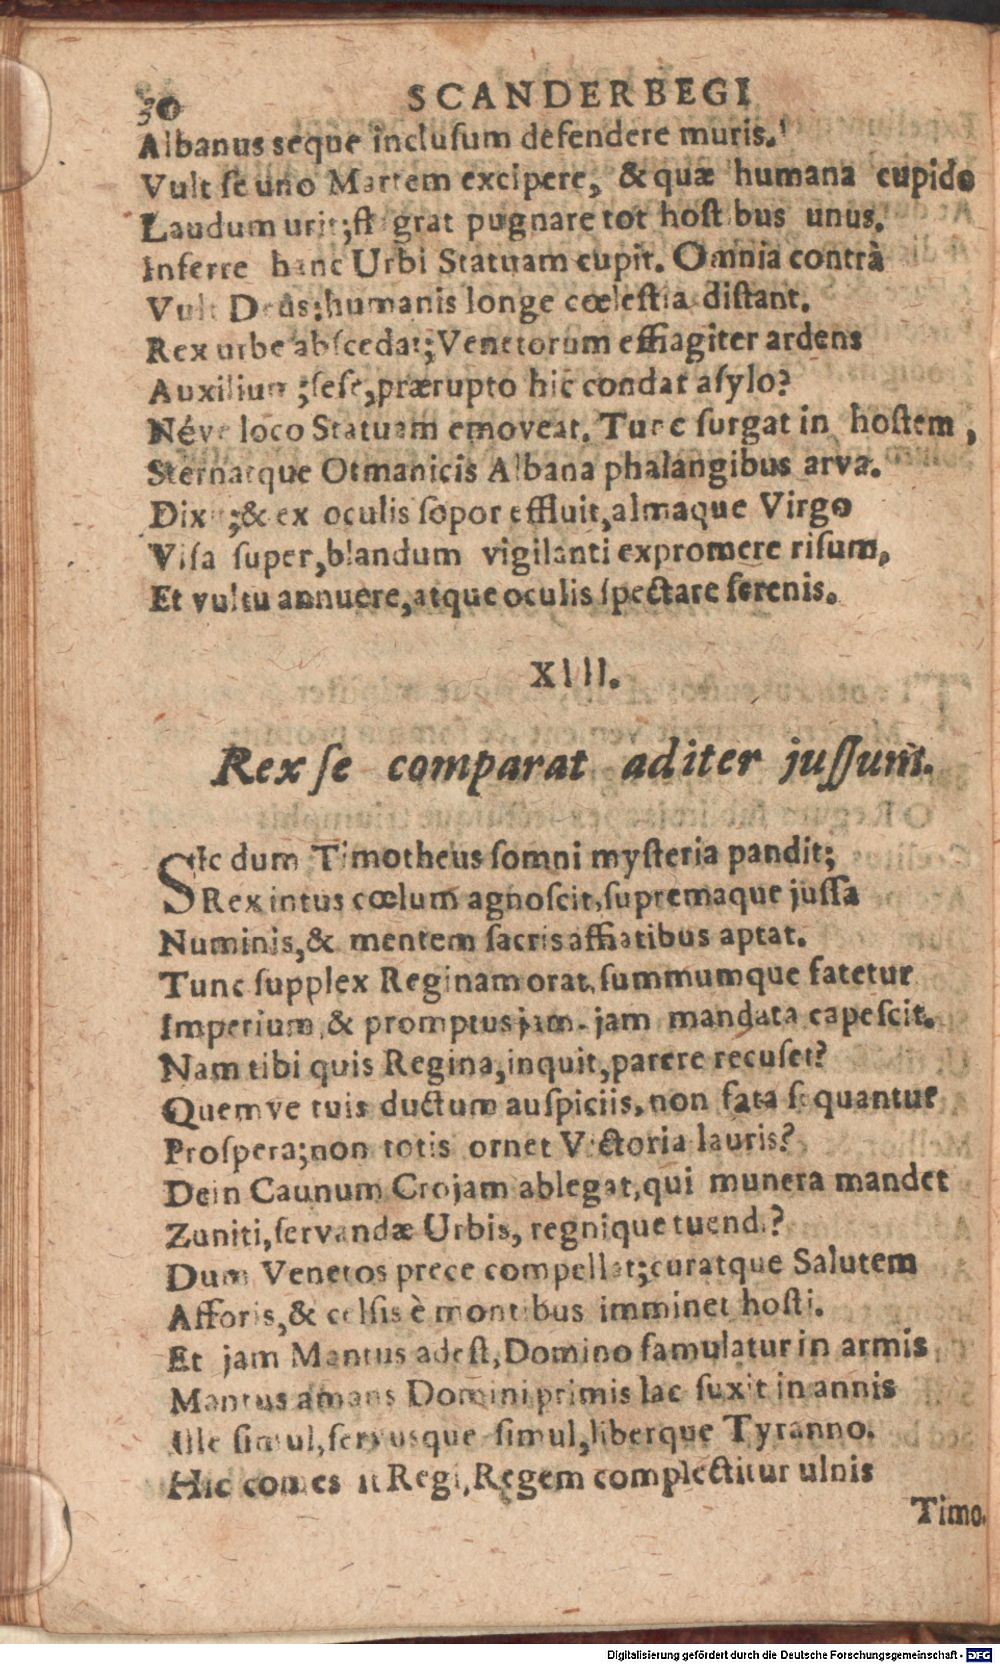 30 SCANDERBEGI
Albanus seque inclusum defendere muris.
Vult se uno Martem excipere, & quæ humana cupido
Laudum urit; stigrat pugnare tot hostibus unus.
Inferre hanc Urbi Statuam cupit. Omnia contrà
Vult Deus: humanis longe cœlestia distant.
Rex urbe abscedat; Venetorum efflagiter ardens
Auxilium; sese, prærupto hic condat asylo?
Néve loco Statuam emoveat. Tunc surgat in hostem,
Sternatque Otmanicis Albana phalangibus arva.
Dixit; & ex oculis sopor effluit, almaque Virgo
Visa super, blandum vigilanti expromere risum,
Et vultu annuere, atque oculis spectare serenis.
XIII.
Rex se comparat ad iter jussum.
SIc dum Timotheus somni mysteria pandit;
Rex intus cœlum agnoscit, supremaque jussa
Numinis, & mentem sacris afflatibus aptat.
Tunc supplex Reginam orat, summumque fatetur
Imperium, & promptus jam-jam mandata capescit.
Nam tibi quis Regina, inquit, parere recuset?
Quemve tuis ductum auspiciis, non fata sequantur
Prospera; non totis ornet Victoria lauris?
Dein Caunum Crojam ablegat, qui munera mandet
Zuniti, servandæ Urbis, regnique tuendi?
Dum Venetos prece compellat; curatque Salutem
Afforis, & celsis è montibus imminet hosti.
Et jam Mantus adest, Domino famulatur in armis
Mantus amans Domini primis lac suxit in annis
Ille simul, servusque simul, liberque Tyranno.
Hic comes it Regi, Regem complectitur ulnis
Timo.
Digitalisierung gefördert durch die Deutsche Forschungsgemeinschaft - DFG